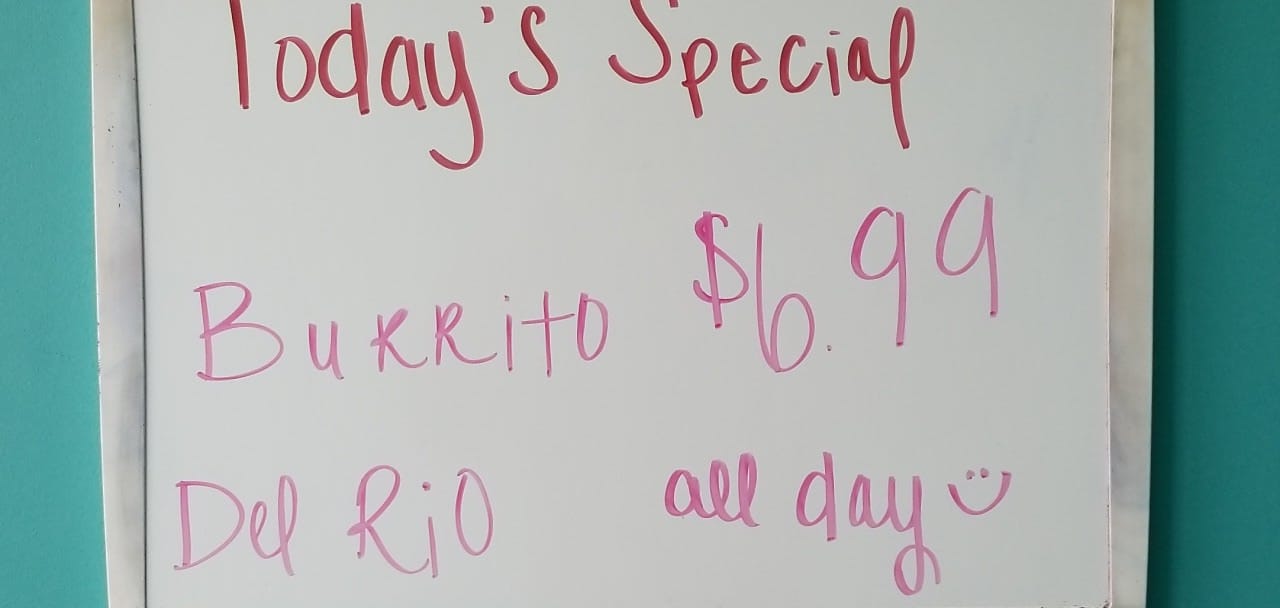 Today's Special
Burrito $6.99
Del Rio all day